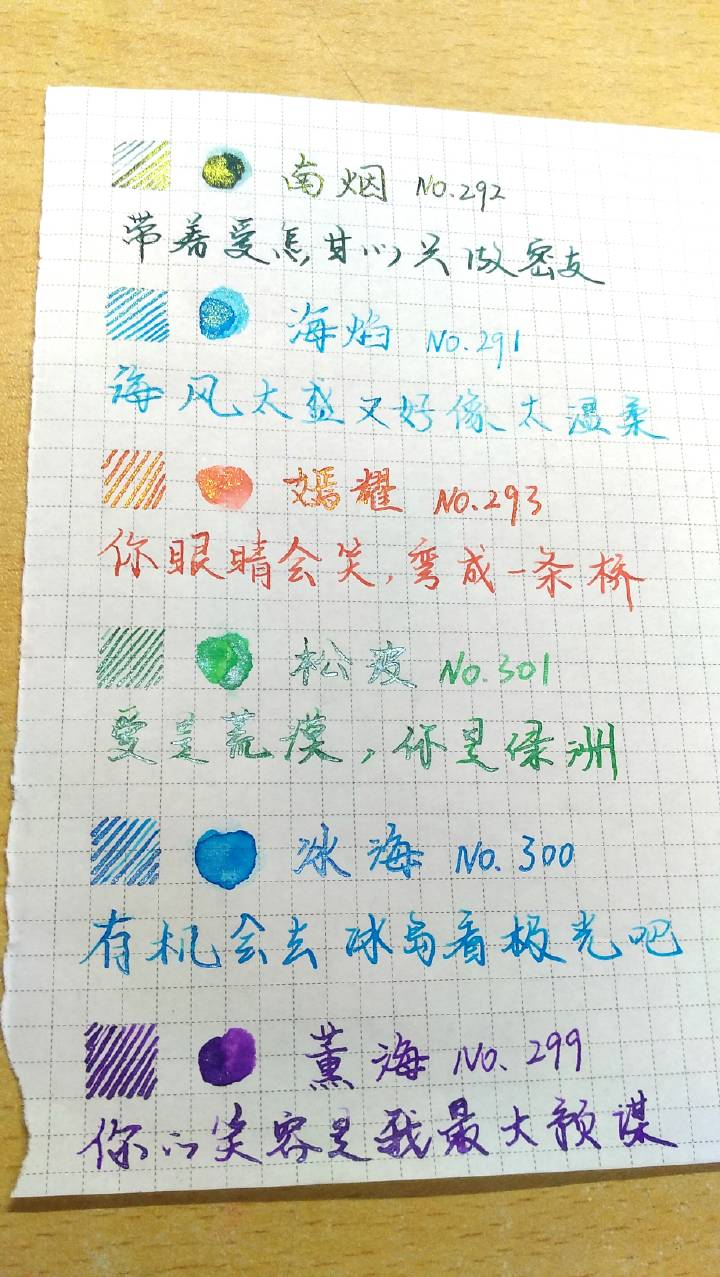 南烟 No.292
带着爱怎甘心只做密友
海焰 No.291
海风太盛又好像太温柔
嫣耀 No.293
你眼睛会笑,弯成一条桥
松波 No.301
爱是荒漠,你是绿洲
冰海 No.300
有机会去冰岛看极光吧
薰海 No.299
你的笑容是我最大预谋